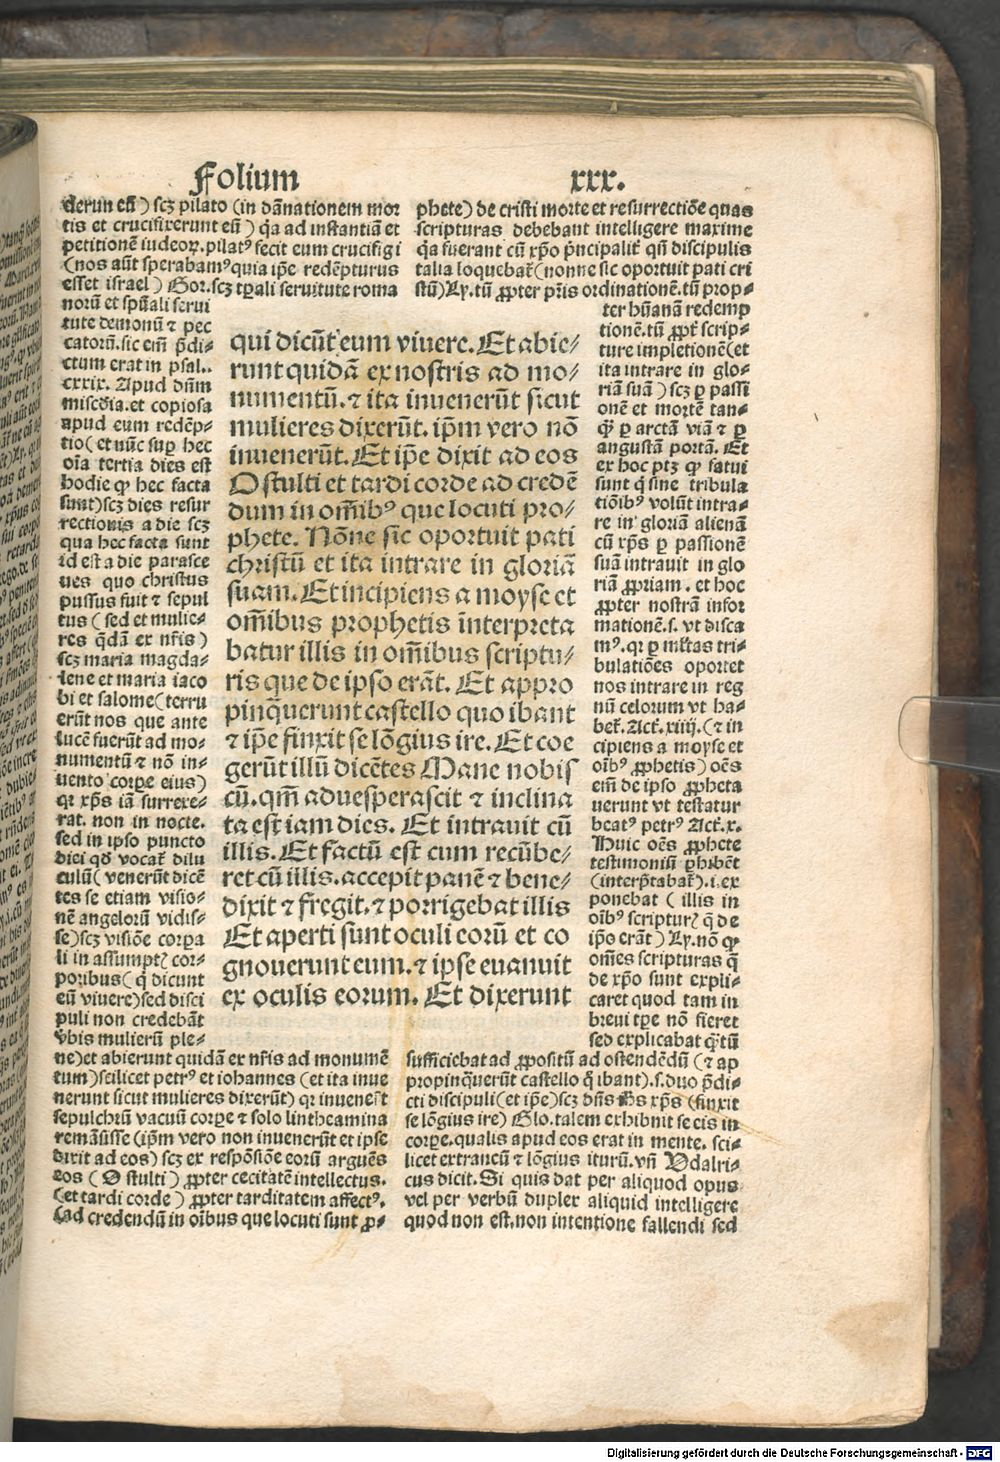 Folium xxx.
derun eū) scꝫ pilato (in dānationem mor
tis et crucifixerunt eū) q̄a ad instantiā et
petitionē iudeoꝝ. pilatꝰ fecit eum crucifigi
(nos aūt sperabamꝰ quia ip̄e redēpturus
esset israel) Gor. scꝫ tꝑali seruitute roma
norū et spūali serui
tute demonū ⁊ pec
catorū. sic em̄ p̄di-
ctum erat in psal..
cxxix. Apud dn̄m
misc̄dia. et copiosa
apud eum redēp-
tio (et nūc suꝑ hec
oīa tertia dies est
hodie ꝙ hec facta
sunt) scꝫ dies resur
rectionis a die scꝫ
qua hec facta sunt
id est a die parasce
ues quo christus
passus fuit ⁊ sepul
tus (sed et mulie-
res q̄dā ex nr̄is)
scꝫ maria magda-
lene et maria iaco
bi et salome (terru
erūt nos que ante
lucē fuerūt ad mo-
numentū ⁊ nō in-
uento corꝑe eius)
qꝛ xp̄s iā surrexe-
rat. non in nocte.
sed in ipso puncto
diei qd̄ vocat̄ dilu
culū (venerūt dicē
tes se etiam visio-
nē angelorū vidis-
se) scꝫ visiōe corꝑa
li in assumptꝭ cor-
poribus (q̄ dicunt
eū viuere) sed disci
puli non credebāt
vbis mulierū ple-
ne) et abierunt quidā ex nr̄is ad monumē
tum) scilicet petrꝰ et iohannes (et ita inue
nerunt sicut mulieres dixerūt) qꝛ inuenerūt
sepulchrū vacuū corꝑe ⁊ solo lintheamina
remāsisse (ip̄m vero non inuenerūt et ipse
dixit ad eos) scꝫ ex respōsiōe eorū arguēs
eos (O stulti) ꝓpter cecitatē intellectus.
(et tardi corde) ꝓpter tarditatem affectꝰ.
(ad credendū in oībus que locuti sunt ꝓ-
qui dicūt eum viuere. Et abie-
runt quidā ex nostris ad mo-
numentū. ⁊ ita inuenerūt sicut
mulieres dixerūt. ip̄m vero nō
inuenerūt. Et ip̄e dixit ad eos
O stulti et tardi corde ad credē
dum in om̄ibꝰ que locuti pro-
phete. Nōne sic oportuit pati
christū et ita intrare in gloriā
suam. Et incipiens a moyse et
om̄ibus prophetis interpreta
batur illis in om̄ibus scriptu-
ris que de ipso erāt. Et appro
pinq̄uerunt castello quo ibant
⁊ ip̄e finxit se lōgius ire. Et coe
gerūt illū dicētes Mane nobis
cū. qm̄ aduesperascit ⁊ inclina
ta est iam dies. Et intrauit cū
illis. Et factū est cum recūbe-
ret cū illis. accepit panē ⁊ bene-
dixit ⁊ fregit. ⁊ porrigebat illis
Et aperti sunt oculi eorū et co
gnouerunt eum. ⁊ ipse euanuit
ex oculis eorum. Et dixerunt
phete) de cristi morte et resurrectiōe quas
scripturas debebant intelligere maxime
q̄a fuerant cū xp̄o p̄ncipalit̄ qn̄ discipulis
talia loquebat̄ (nonne sic oportuit pati cri
stū) Ly. tū ꝓpter pr̄is ordinationē. tū prop-
ter hūanā redemp
tionē. tū ꝓpt̄ scrip-
ture impletionē (et
ita intrare in glo-
riā suā) scꝫ ꝑ passi
onē et mortē tan-
ꝙ̄ ꝑ arctā viā ⁊ ꝑ
angustā portā. Et
ex hoc ptꝫ ꝙ fatui
sunt q̄ sine tribula
tiōibꝰ volūt intra-
re in gloriā alienā
cū xp̄s ꝑ passionē
suā intrauit in glo
riā ꝓpriam. et hoc
ꝓpter nostrā infor
mationē. s. vt disca
mꝰ. qꝛ ꝑ ml̄tas tri-
bulatiōes oportet
nos intrare in reg
nū celorum vt ha-
bet̄. Act̄. xiiij. (⁊ in
cipiens a moyse et
oībꝰ ꝓphetis) oēs
em̄ de ipso ꝓpheta
uerunt vt testatur
beatꝰ petrꝰ Act̄. x.
Huic oēs ꝓphete
testimoniū ꝑhibēt
(interp̄tabat̄). i. ex
ponebat (illis in
oībꝰ scripturꝭ q̄ de
ip̄o erāt) Ly. nō ꝙ
om̄es scripturas q̄
de xp̄o sunt expli-
caret quod tam in
breui tꝑe nō fieret
sed explicabat ꝙ̄tū
sufficiebat ad ꝓpositū ad ostendēdū (⁊ ap
propinq̄uerūt castello q̄ ibant). s. duo p̄di-
cti discipuli (et ip̄e) scꝫ dn̄s ihs xp̄s (finxit
se lōgius ire) Glo. talem exhibuit se eis in
corꝑe. qualis apud eos erat in mente. sci-
licet extraneū ⁊ lōgius iturū. vn̄ Vdalri-
cus dicit. Si quis dat per aliquod opus
vel per verbū dupler aliquid intelligere
quod non est. non intentione fallendi sed
Digitalisierung gefördert durch die Deutsche Forschungsgemeinschaft - DFG